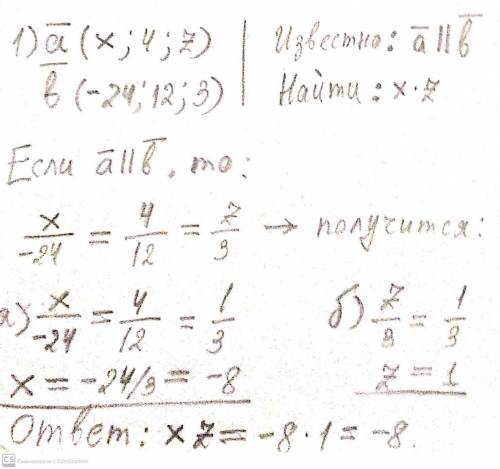 1) a̅ (x; 4; z) | Известно: a̅ || b̅
b̅ (-24; 12; 3) | Найти: x·z
Если a̅ || b̅, то:
x/-24 = 4/12 = z/3 → получится:
а) x/-24 = 4/12 = 1/3   б) z/3 = 1/3
x = -24/3 = -8   z = 1
Ответ: xz = -8·1 = -8.
CS Сканировано с CamScanner